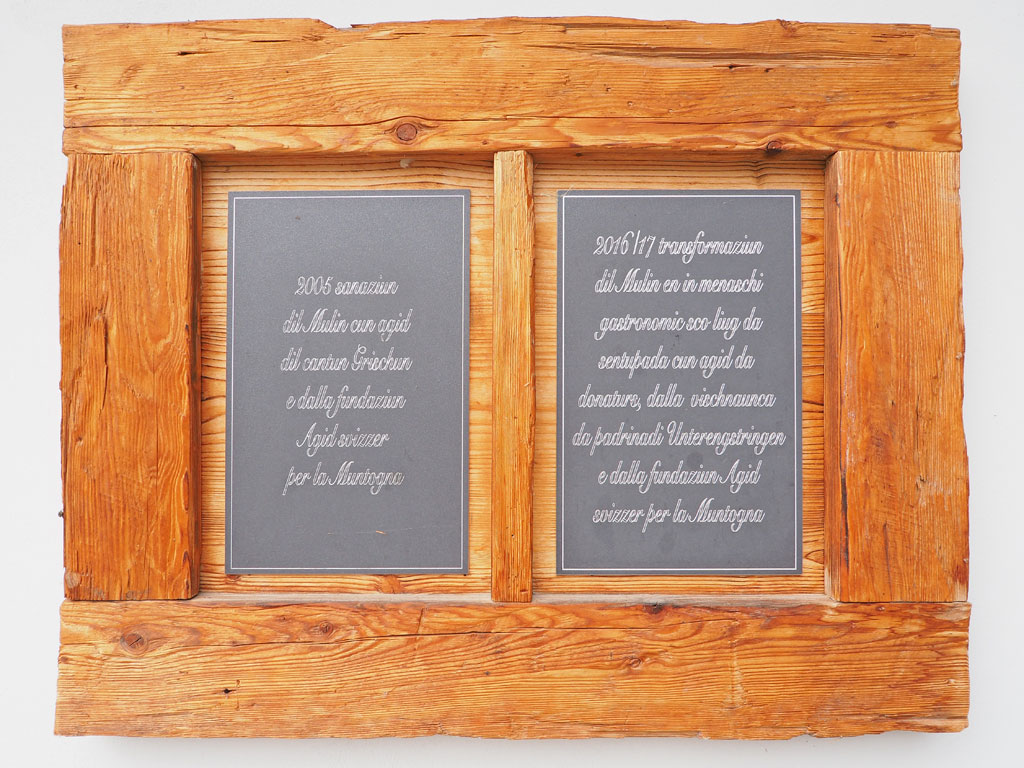 2005 sanaziun
dil Mulin cun agid
dil cantun Grischun
e dalla fundaziun
Agid svizzer
per la Muntogna
2016/17 transformaziun
dil Mulin en in menaschi
gastronomic sco liug da
sentupada cun agid da
donaturs, dalla vischnaunca
da padrinadi Unterengstringen
e dalla fundaziun Agid
svizzer per la Muntogna